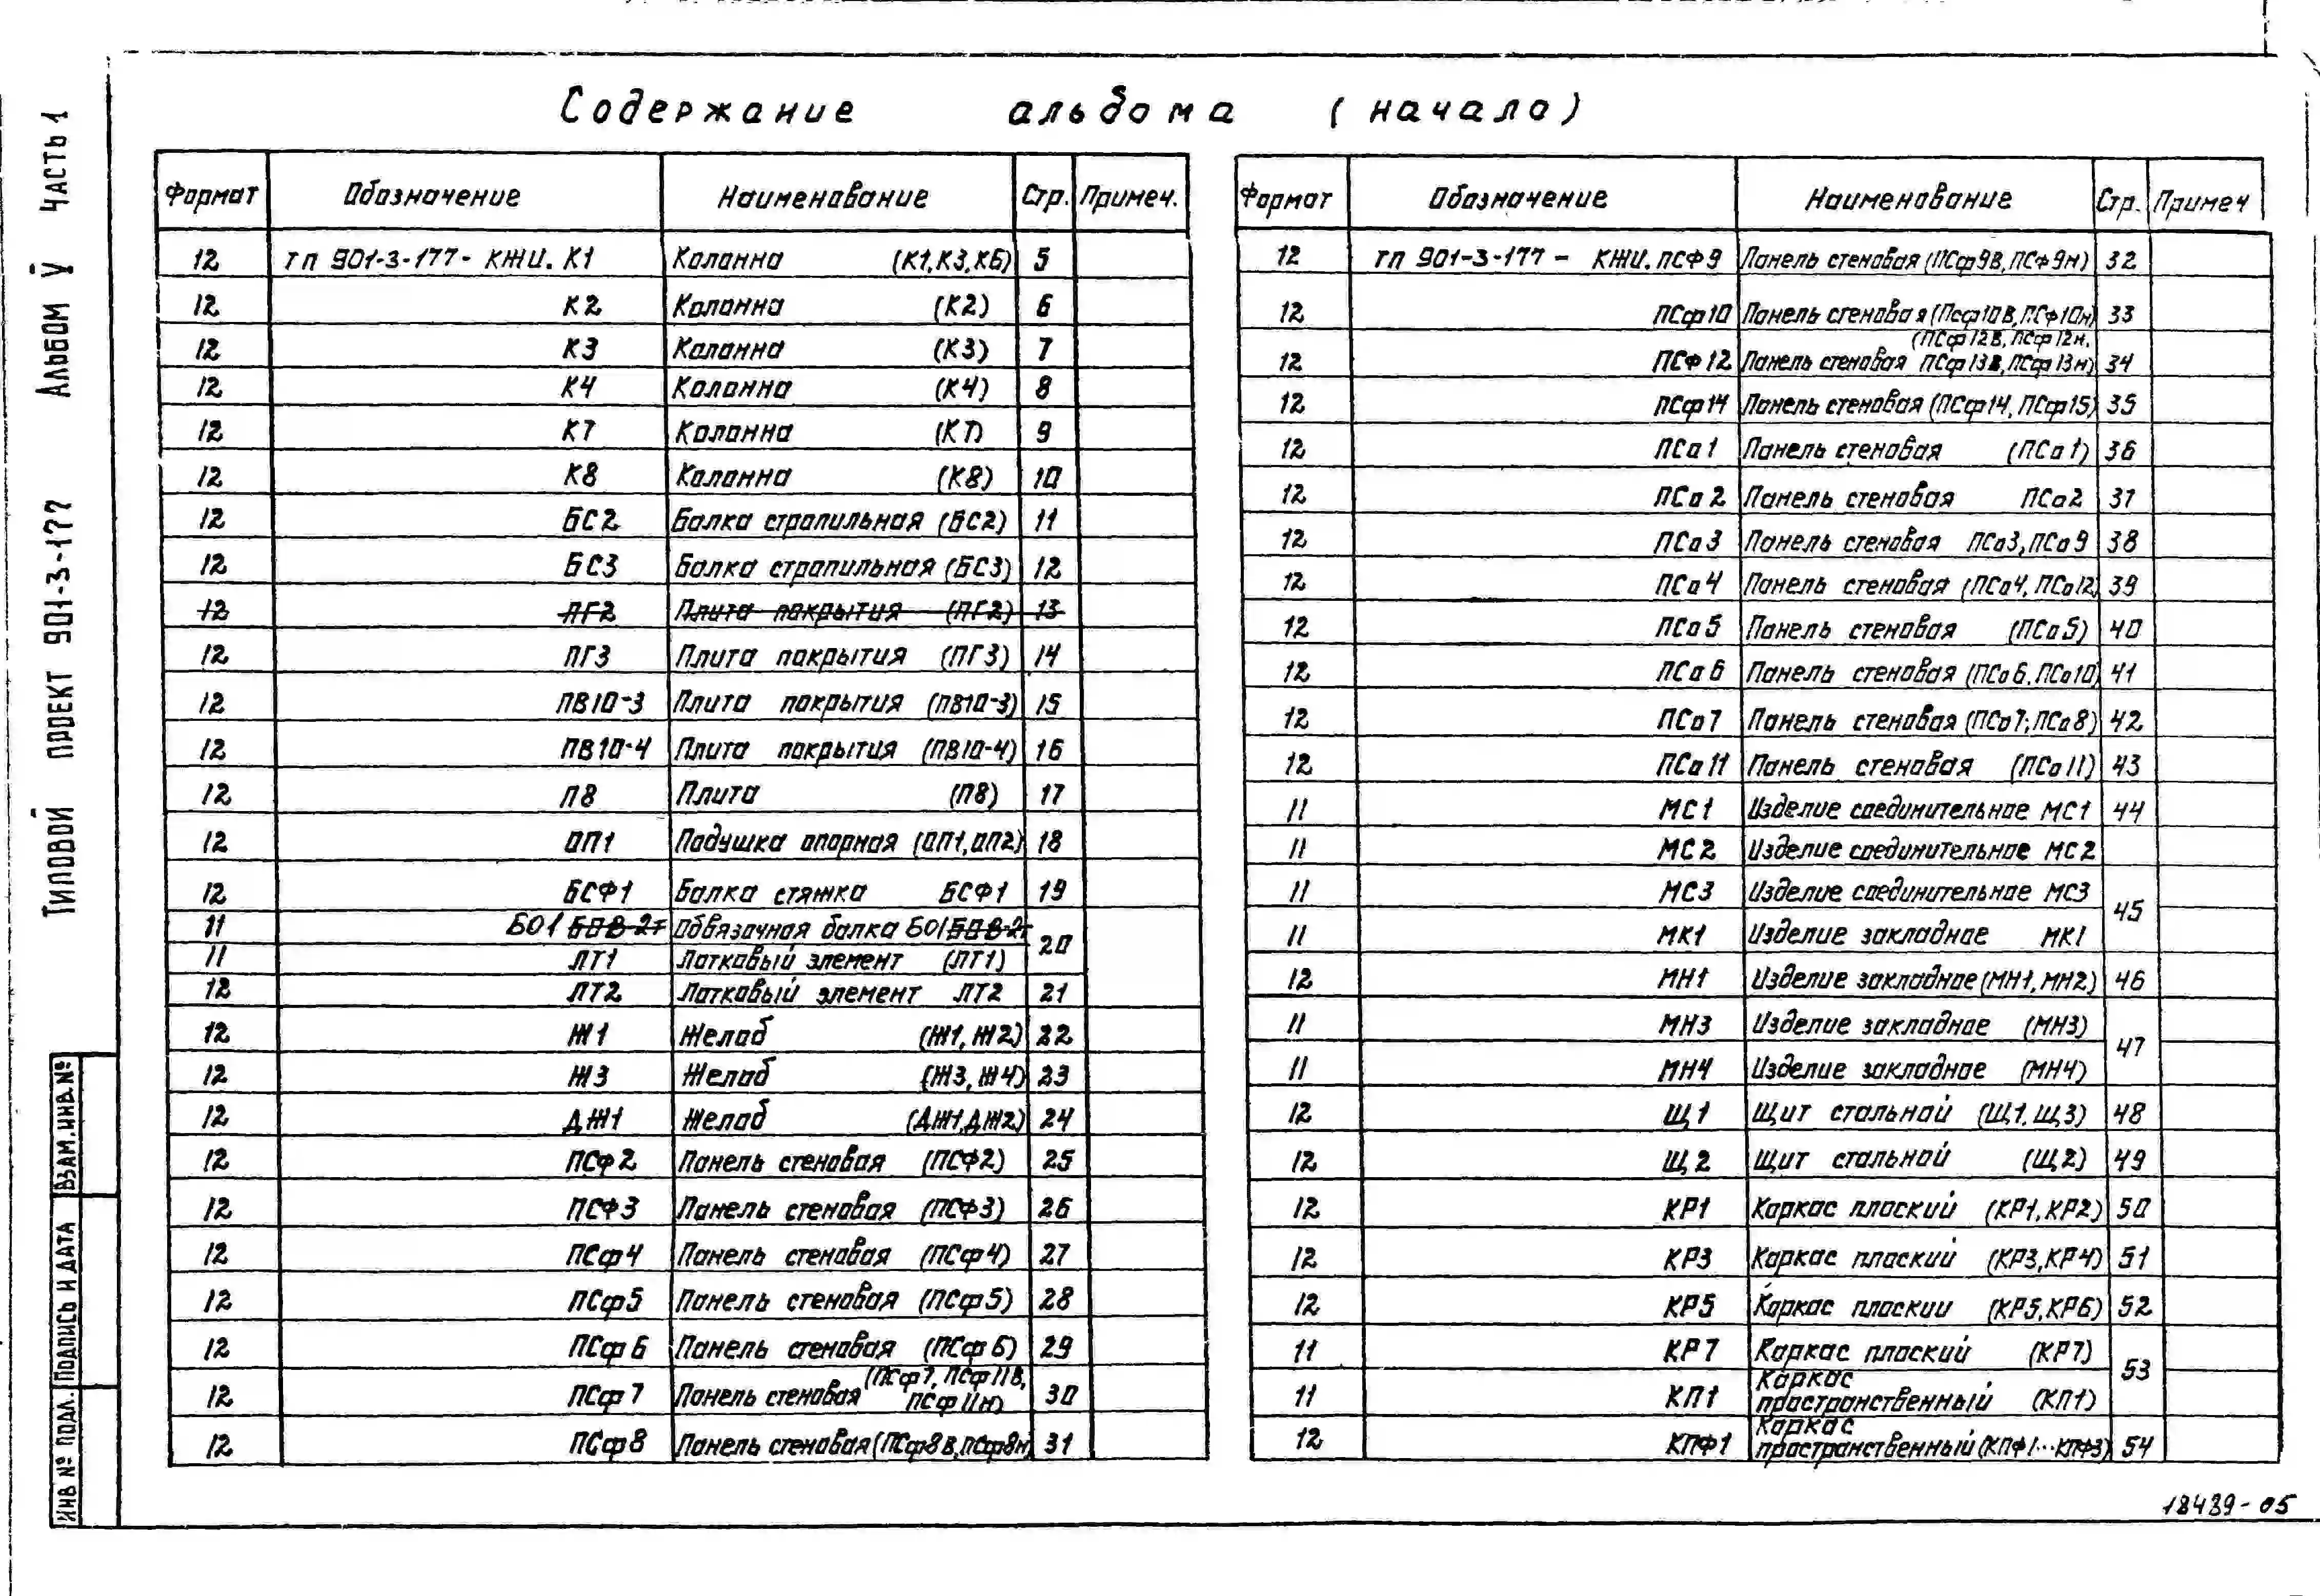 Содержание альбома (начало)
Формат Обозначение Наименование Стр. Примеч.
12 тп 901-3-177- КЖИ. К1 Колонна (К1, К3, К6) 5
12 К2 Колонна (К2) 6
12 К3 Колонна (К3) 7
12 К4 Колонна (К4) 8
12 К7 Колонна (К7) 9
12 К8 Колонна (К8) 10
12 БС2 Балка стропильная (БС2) 11
12 БС3 Балка стропильная (БС3) 12
12 ПГ2 Плита покрытия (ПГ2) 13
12 ПГ3 Плита покрытия (ПГ3) 14
12 ПВ10-3 Плита покрытия (ПВ10-3) 15
12 ПВ10-4 Плита покрытия (ПВ10-4) 16
12 П8 Плита (П8) 17
12 ОП1 Подушка опорная (ОП1, ОП2) 18
12 БСФ1 Балка стяжка БСФ1 19
11 БО1 Обвязочная балка БО1
20
11 ЛТ1 Лотковый элемент (ЛТ1)
12 ЛТ2 Лотковый элемент ЛТ2 21
12 Ж1 Желоб (Ж1, Ж2) 22
12 Ж3 Желоб (Ж3, Ж4) 23
12 ДЖ1 Желоб (ДЖ1, ДЖ2) 24
12 ПСф2 Панель стеновая (ПСФ2) 25
12 ПСФ3 Панель стеновая (ПСФ3) 26
12 ПСф4 Панель стеновая (ПСф4) 27
12 ПСф5 Панель стеновая (ПСф5) 28
12 ПСф6 Панель стеновая (ПСф6) 29
12 ПСф7 Панель стеновая (ПСф7, ПСф11В, 30
ПСф11н)
12 ПСф8 Панель стеновая (ПСф8В, ПСф8н) 31
Формат Обозначение Наименование Стр. Примеч
12 тп 901-3-177 - КЖИ. ПСФ9 Панель стеновая (ПСф9В, ПСф9н) 32
12 ПСф10 Панель стеновая (ПСф10В, ПСф10н) 33
(ПСф12В, ПСф12н,
12 ПСФ12 Панель стеновая ПСф13В, ПСф13н) 34
12 ПСф14 Панель стеновая (ПСф14, ПСф15) 35
12 ПСа1 Панель стеновая (ПСа1) 36
12 ПСа2 Панель стеновая ПСа2 37
12 ПСа3 Панель стеновая ПСа3, ПСа9 38
12 ПСа4 Панель стеновая (ПСа4, ПСа12) 39
12 ПСа5 Панель стеновая (ПСа5) 40
12 ПСа6 Панель стеновая (ПСа6, ПСа10) 41
12 ПСа7 Панель стеновая (ПСа7; ПСа8) 42
12 ПСа11 Панель стеновая (ПСа11) 43
11 МС1 Изделие соединительное МС1 44
11 МС2 Изделие соединительное МС2
11 МС3 Изделие соединительное МС3
45
11 МК1 Изделие закладное МК1
12 МН1 Изделие закладное (МН1, МН2) 46
11 МН3 Изделие закладное (МН3)
47
11 МН4 Изделие закладное (МН4)
12 Щ1 Щит стальной (Щ1, Щ3) 48
12 Щ2 Щит стальной (Щ2) 49
12 КР1 Каркас плоский (КР1, КР2) 50
12 КР3 Каркас плоский (КР3, КР4) 51
12 КР5 Каркас плоский (КР5, КР6) 52
11 КР7 Каркас плоский (КР7)
53
Каркас
11 КП1 пространственный (КП1)
Каркас
12 КПФ1 пространственный (КПФ1...КПФ3) 54
Типовой проект 901-3-177 Альбом V Часть 1
Инв № подл. Подпись и дата Взам. инв. №
18439-05